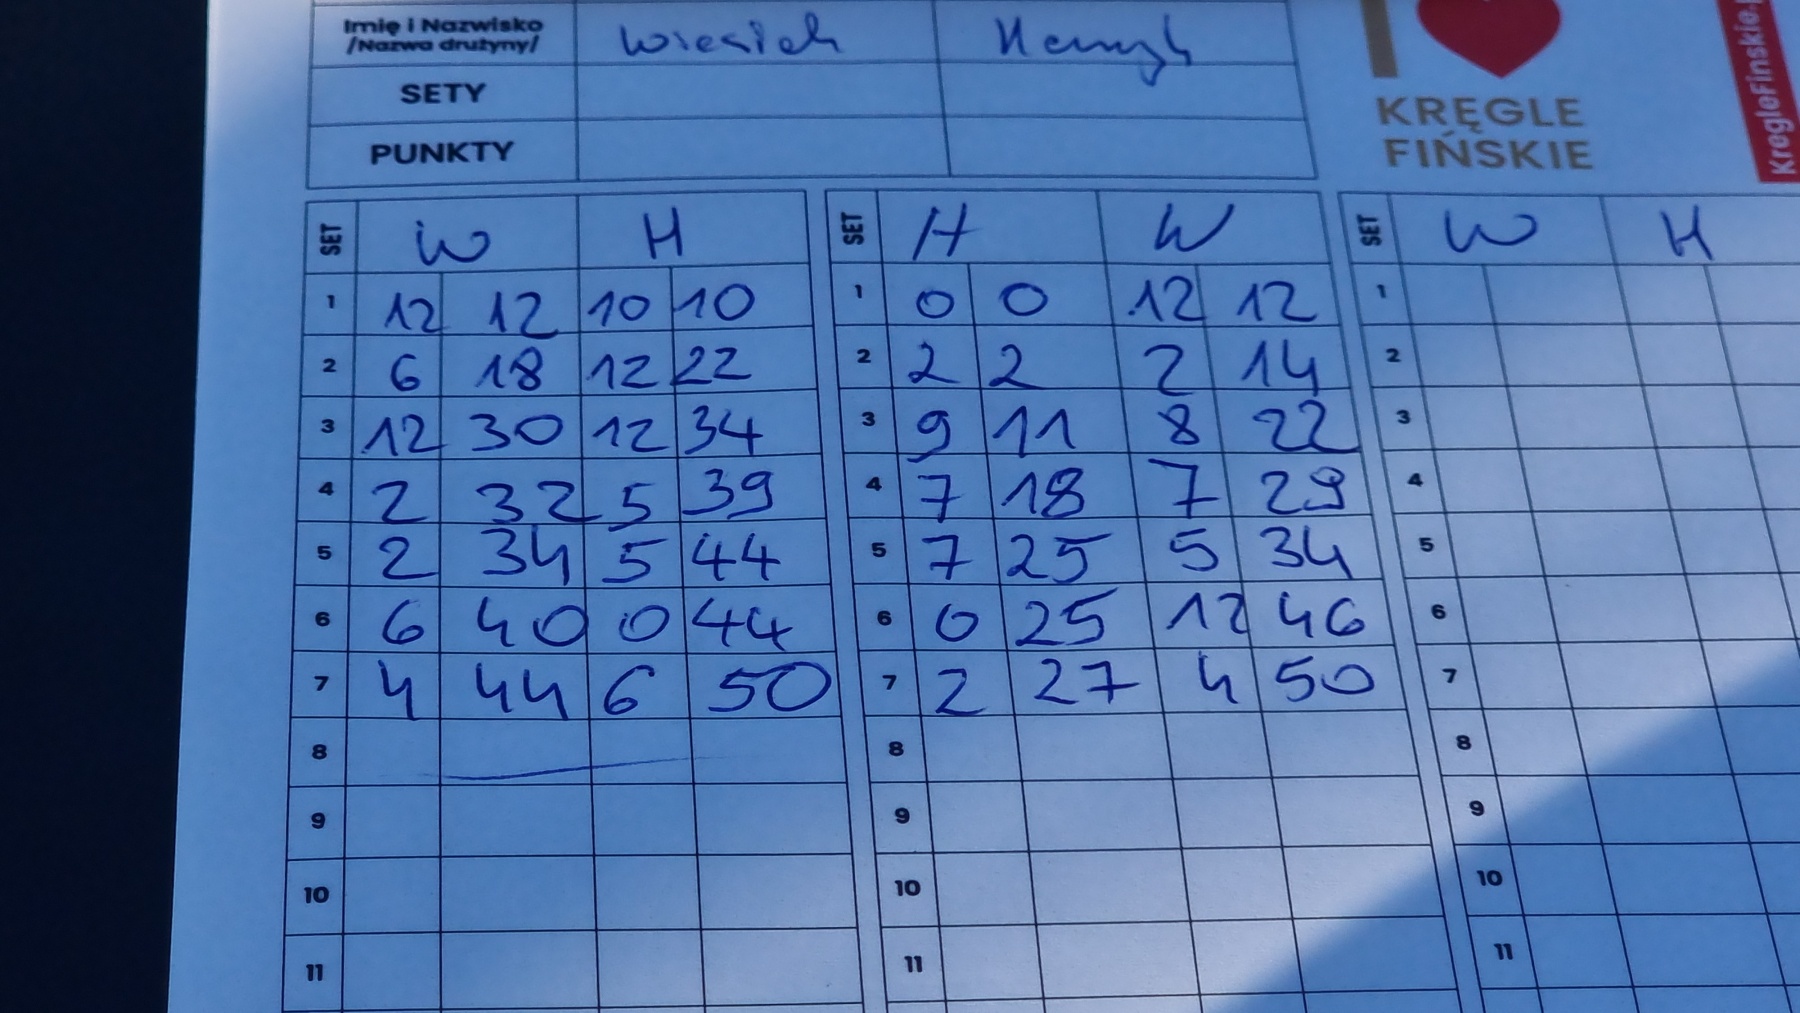 Imię i Nazwisko
/Nazwa drużyny/ Wiesiek Henryk
SETY
PUNKTY
KRĘGLE
FIŃSKIE
KregleFinskie.
SET W H
1 12 12 10 10
2 6 18 12 22
3 12 30 12 34
4 2 32 5 39
5 2 34 5 44
6 6 40 0 44
7 4 44 6 50
8
9
10
11
SET H W
1 0 0 12 12
2 2 2 2 14
3 9 11 8 22
4 7 18 7 29
5 7 25 5 34
6 0 25 12 46
7 2 27 4 50
8
9
10
11
SET W H
1
2
3
4
5
6
7
8
9
10
11